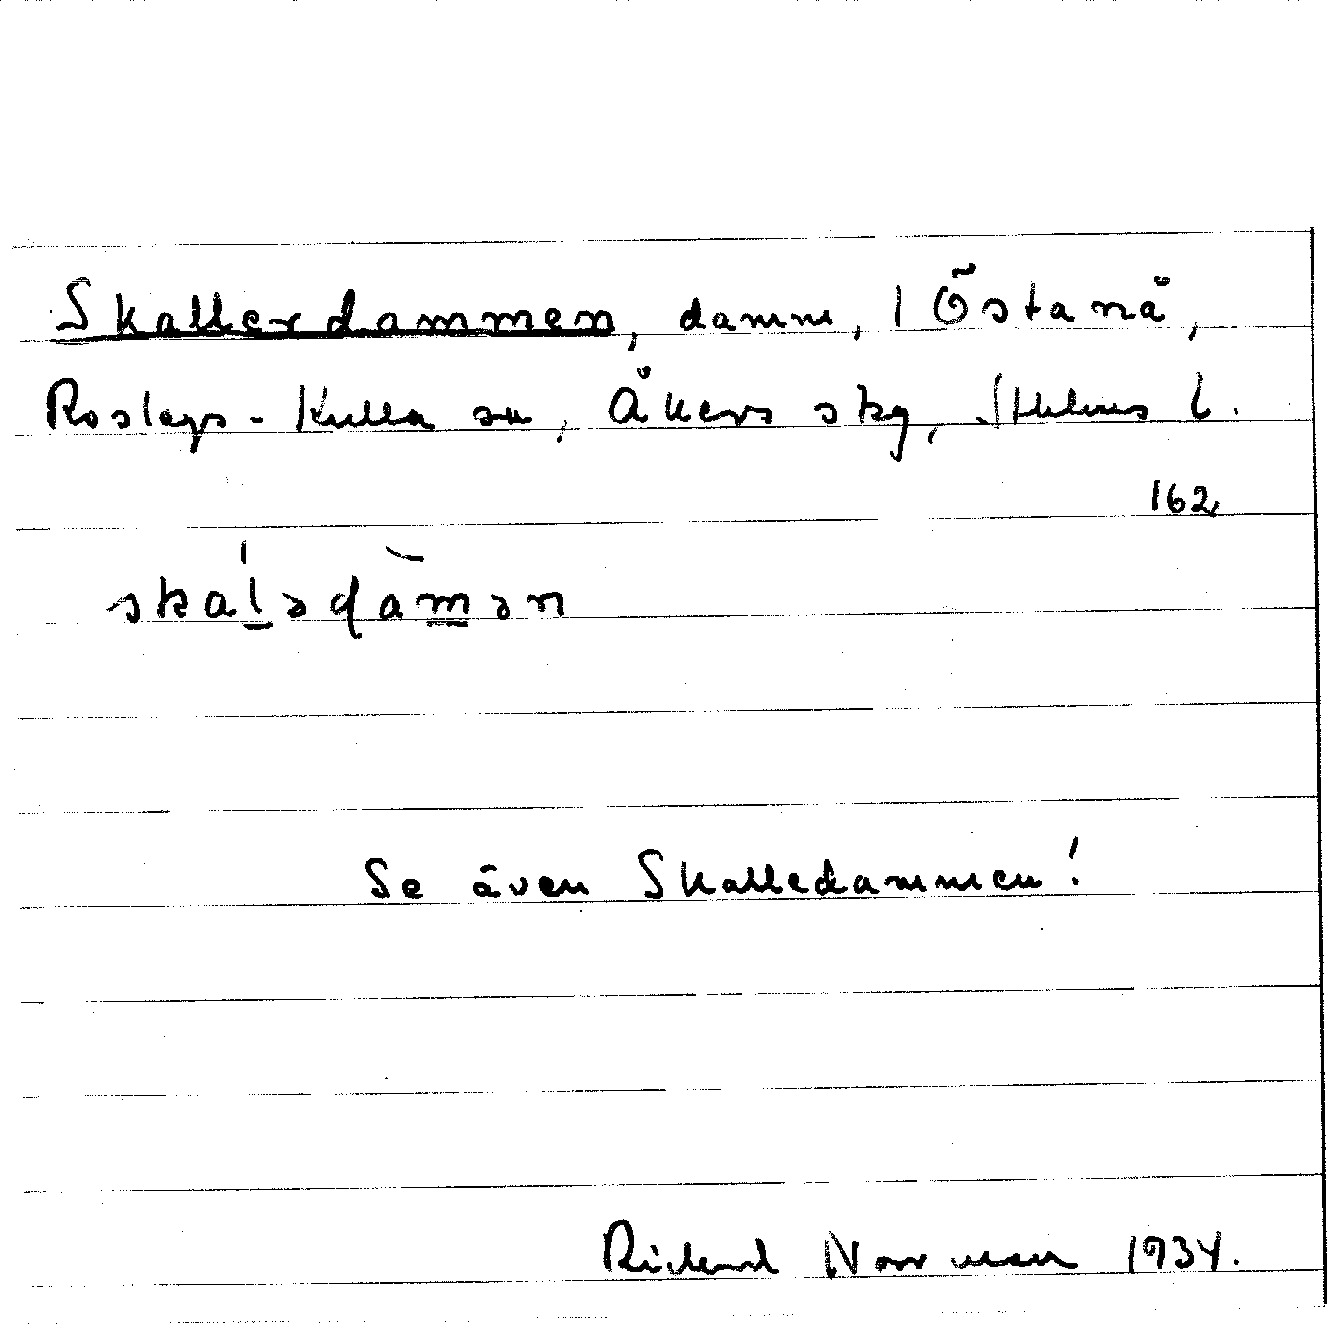 Skallerdammen, damm, 1 Östanå,
Roslags-Kulla sn, Åkers skg, Sthlms l.
162
skalədàmən
Se även Skalledammen!
Rickard Norrman 1934.